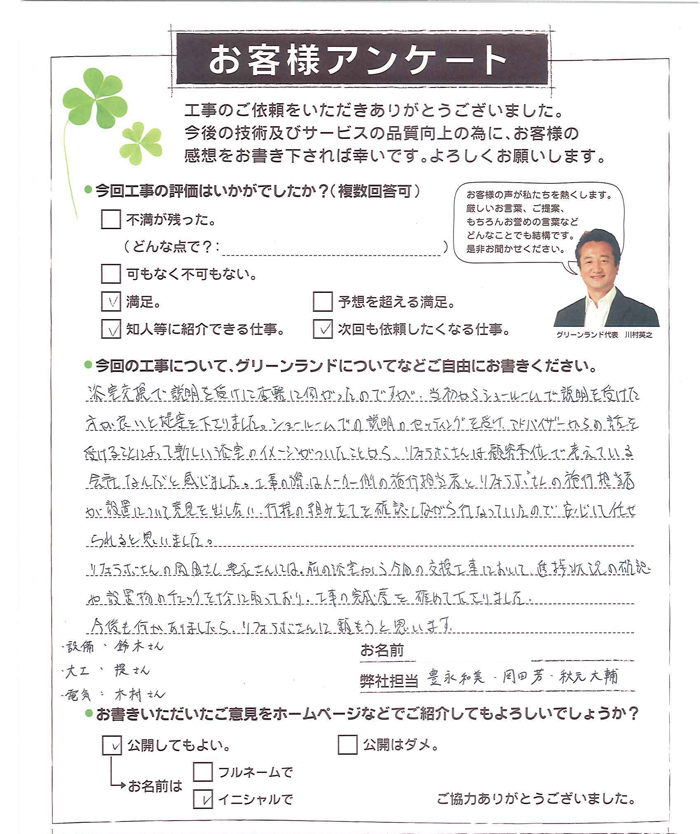 お客様アンケート
工事のご依頼をいただきありがとうございました。
今後の技術及びサービスの品質向上の為に、お客様の
感想をお書き下されば幸いです。よろしくお願いします。
今回工事の評価はいかがでしたか？（複数回答可）
不満が残った。
（どんな点で？：　）
可もなく不可もない。
満足。
予想を超える満足。
知人等に紹介できる仕事。
次回も依頼したくなる仕事。
お客様の声が私たちを熱くします。
厳しいお言葉、ご提案、
もちろんお誉めの言葉など
どんなことでも結構です。
是非お聞かせください。
グリーンランド代表　川村英之
今回の工事について、グリーンランドについてなどご自由にお書きください。
浴室交換で説明を受けに店舗に伺がったのですが、当初からショールームで説明を受けた
方が良いと提案を下さりました。ショールームでの説明のセッティングを受け、アドバイザーからの話を
受けることによって新しい浴室のイメージがついたことから、リフォラボさんは顧客本位で考えている
会社なんだと感じました。工事の際はメーカー側の施行担当者とリフォラボさんの施行担当者
が設置について意見を出し合い、行程の組み立てを確認しながら行なっていたので安心して任せ
られると思いました。
リフォラボさんの岡田さん、豊永さんには、前の浴室から今回の交換工事において、進捗状況の確認
や設置物のチェックを十分に取っており、工事の完成度を確めて下さりました。
今後も何かありましたら、リフォラボさんに頼もうと思います。
・設備：鈴木さん
・大工：堤さん
・電気：木村さん
お名前
弊社担当　豊永和美・岡田芳・秋元大輔
お書きいただいたご意見をホームページなどでご紹介してもよろしいでしょうか？
公開してもよい。
公開はダメ。
お名前は
フルネームで
イニシャルで
ご協力ありがとうございました。